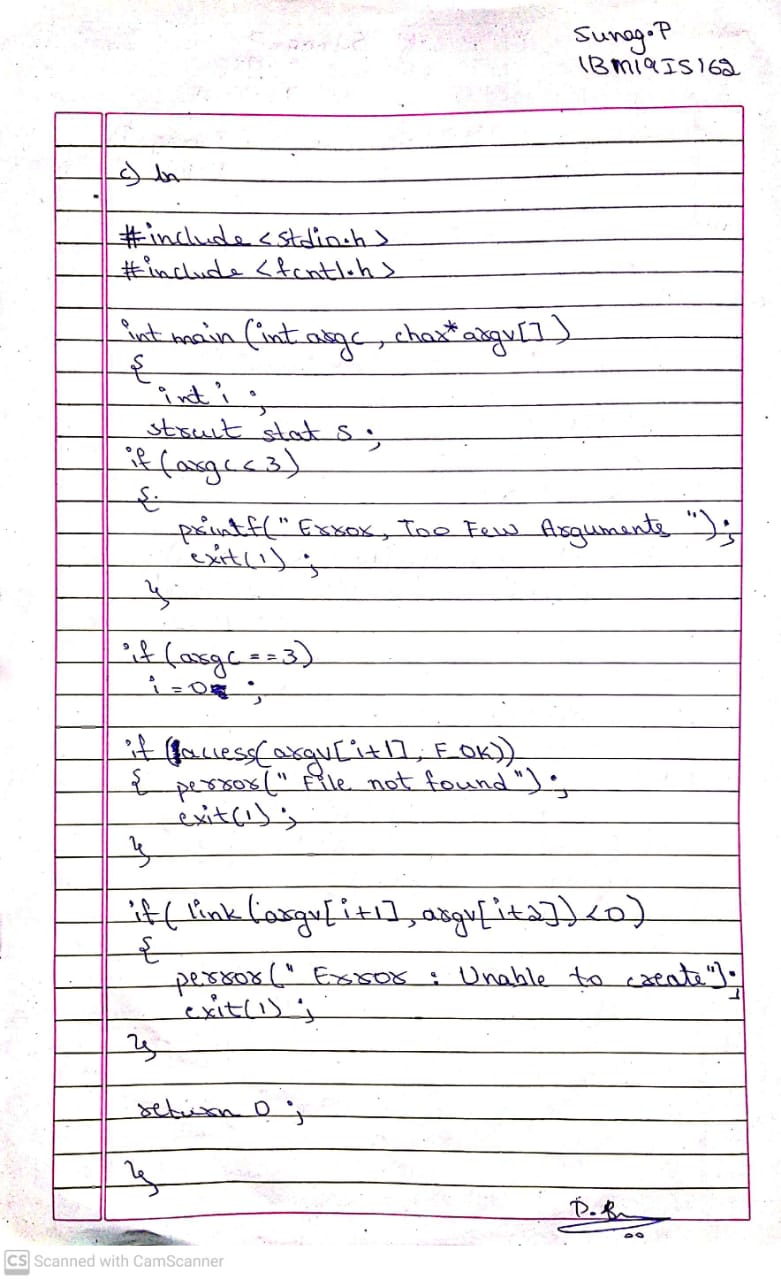 Sunag.P
1BM19IS162
c) ln
#include <stdio.h>
#include <fcntl.h>
int main (int argc, char* argv[])
{
int i ;
struct stat s ;
if (argc < 3)
{
printf(" Error, Too Few Arguments ");
exit(1) ;
}
if (argc == 3)
i = 0 ;
if (access(argv[i+1], F_OK))
{ perror(" File not found") ;
exit(1) ;
}
if ( link (argv[i+1], argv[i+2]) <0)
{
perror(" Error : Unable to create");
exit(1) ;
}
return 0 ;
}
CS Scanned with CamScanner